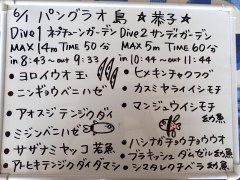 6/1 パングラオ島 ☆恭子☆
Dive1 ネイチャーガーデン
MAX 14m TIME 50分
in 8:43 〜 out 9:33
ヨロイウオ 王
ニンギョウベニハゼ
アオスジテンジクダイ
ミジンベニハゼ
サザナミヤッコ 若魚
アトヒキテンジクダイダマシ
Dive2 サンデーガーデン
MAX 5m TIME 60分
in 10:44 〜 out 11:44
ヒメキンチャクフグ
カスミヤライイシモチ
マンジュウイシモチ
幼魚
ハシナガチョウチョウウオ
ブラキッシュ ダムゼル 幼魚
シマタレクチベラ 幼魚